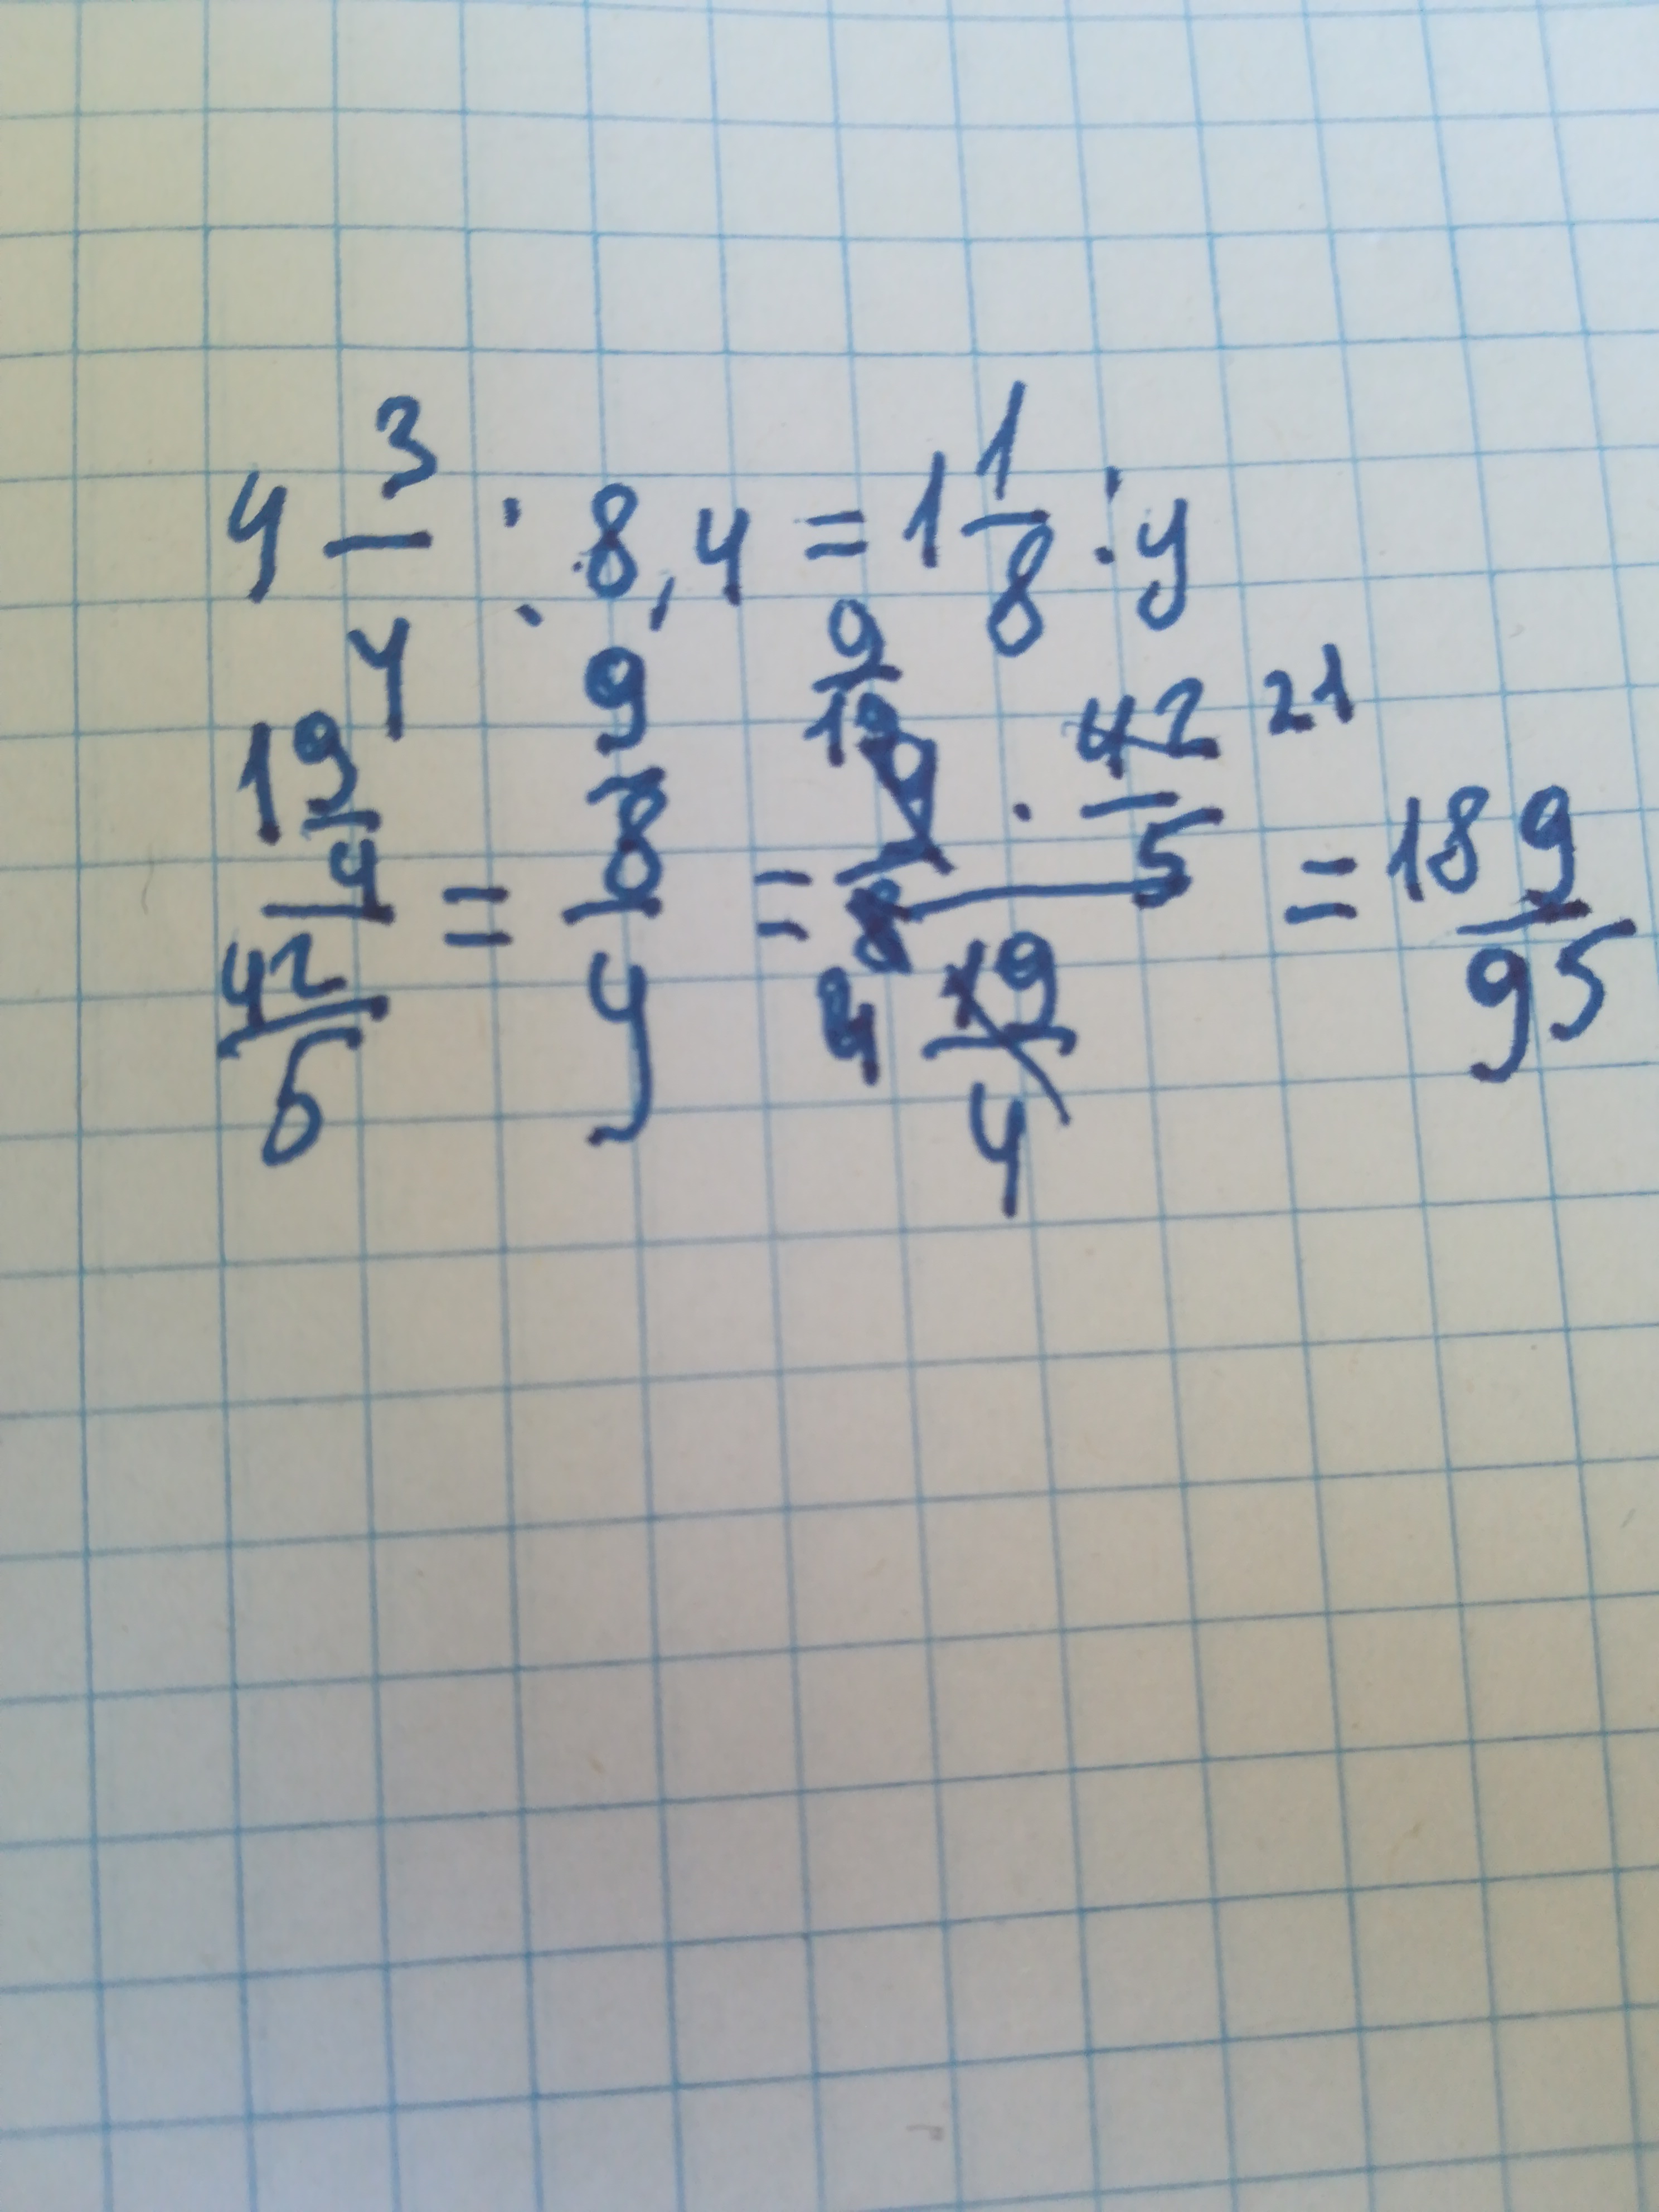 4 3/4 : 8,4 = 1 1/8 : y
19/4 / 42/5 = 9/8 / y = 9/8 · 42/5 21 / 19/4 = 189/95